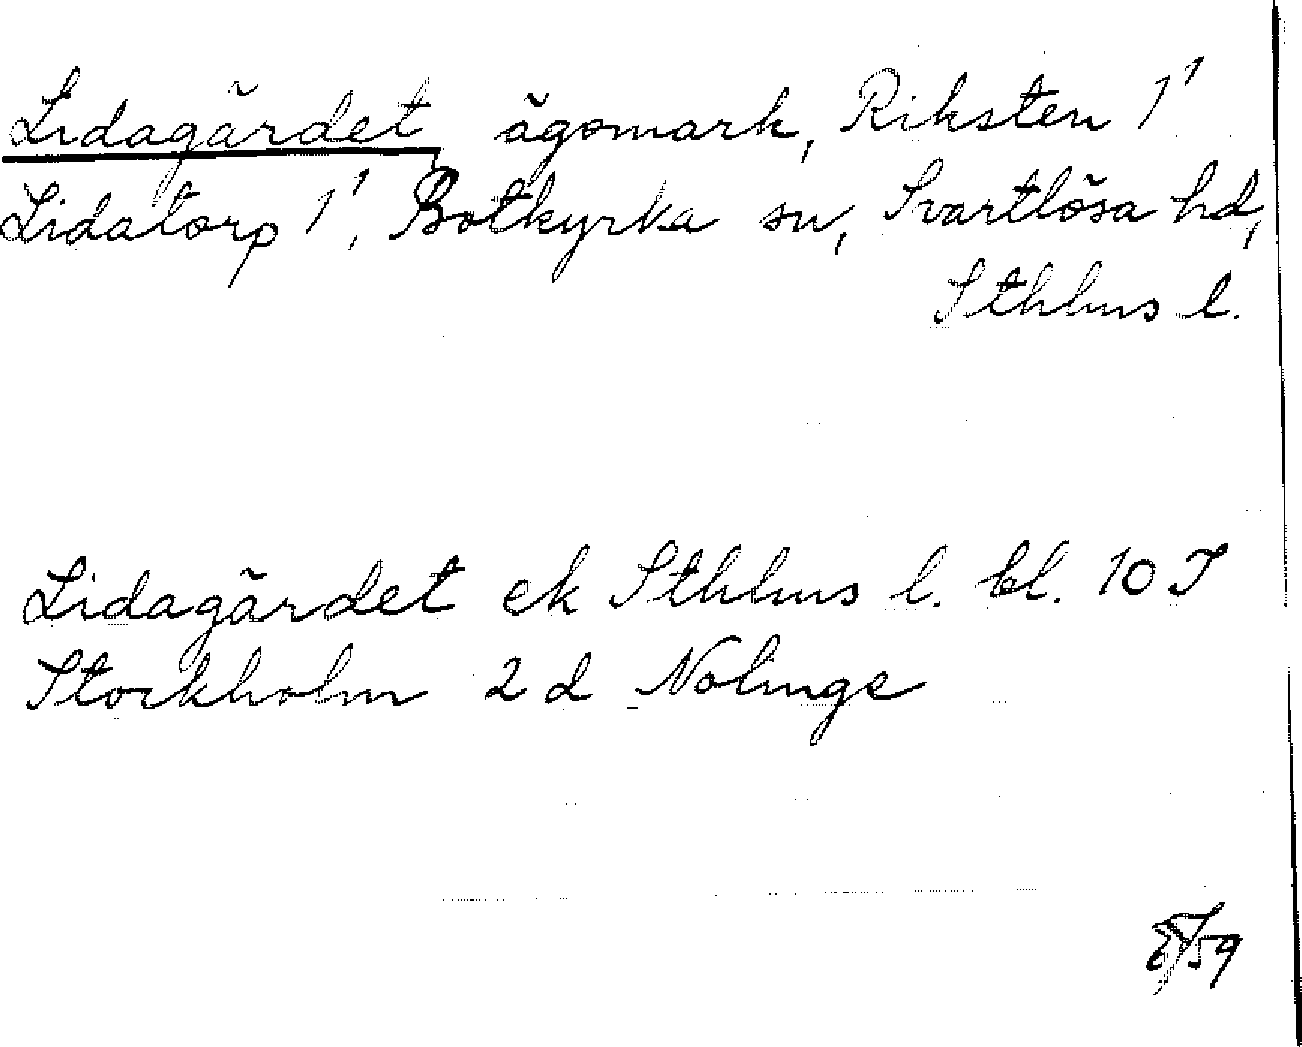 Lidagärdet, ägomark, Riksten 1¹
Lidatorp 1¹, Botkyrka sn, Svartlösa hd,
Sthlms l.
Lidagärdet ek Sthlms l. bl. 10 I
Stockholm 2 d Nolinge